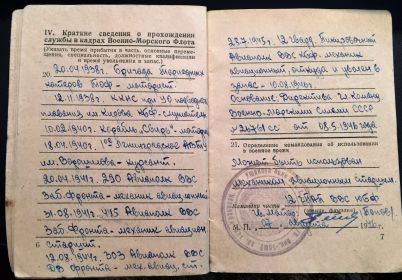 IV. Краткие сведения о прохождении
службы в кадрах Военно-Морского Флота
(Указать время прибытия в часть, основные переме-
щения, специальность, должностные квалификации
и время увольнения в запас.)
20. 20.04.1938г. Бригада торпедных
катеров ТОФ - моторист
12.11.1938г. ККНС при УО подводного
плавания им. Кирова КБФ - слушатель
10.02.1940г. Корабль "Свирь" - моторист
18.04.1941г. Ленинградское
им. Ворошилова - курсант.
20.04.1941г. 290 Авиаполк ВВС
Заб. фронта - механик авиационный
31.08.1941г. 415 Авиаполк ВВС
Заб. фронта - механик авиацион
старший.
12.08.1941г. 303 Авиаполк ВВС
фронта - мех. авиац. ст.
6
23.7.1945г. 12 Гвард. Пикировочный
Авиаполк ВВС КБФ. механик
авиационный, откуда и уволен в
запас - 10.08.1946г.
Основание: Директива Гл. Команд.
Военно-Морскими Силами СССР
от 08.5.1946 года
21. Определение командования об использовании
в военное время
Может быть использован
механиком авиационным старшим.
Командир части 12 ГВАП ВВС ЮБФ
М. П. августа 1946г.
7